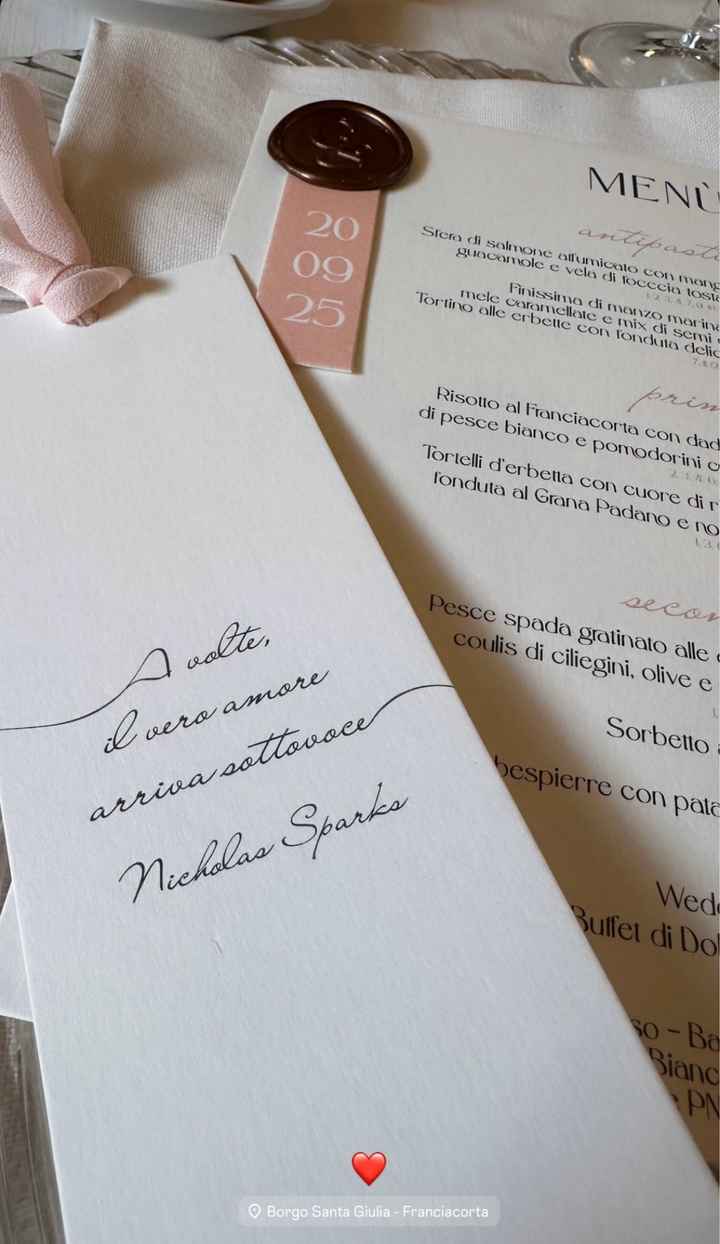 20
09
25
MENÙ
antipasti
Sfera di salmone affumicato con mang
guacamole e vela di focccia tost
Finissima di manzo marin
mele caramellate e mix di semi
Tortino alle erbette con fonduta delic
prim
Risotto al Franciacorta con dad
di pesce bianco e pomodorini c
Tortelli d'erbetta con cuore di r
fonduta al Grana Padano e no
secon
Pesce spada gratinato alle
coulis di ciliegini, olive e
Sorbetto
bespierre con pata
Wedd
Buffet di Dol
so - Ba
Bianc
PN
A volte,
il vero amore
arriva sottovoce
Nicholas Sparks
Borgo Santa Giulia - Franciacorta